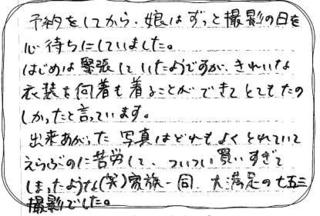 予約をしてから、娘はずっと撮影の日を
心待ちにしていました。
はじめは緊張していたようですが、きれいな
衣装を何着も着ることができてとてもたの
しかったと言っています。
出来あがった写真はどれもよくとれていて
えらぶのに苦労して、ついつい買いすぎて
しまったような(笑)家族一同、大満足の七五三
撮影でした。